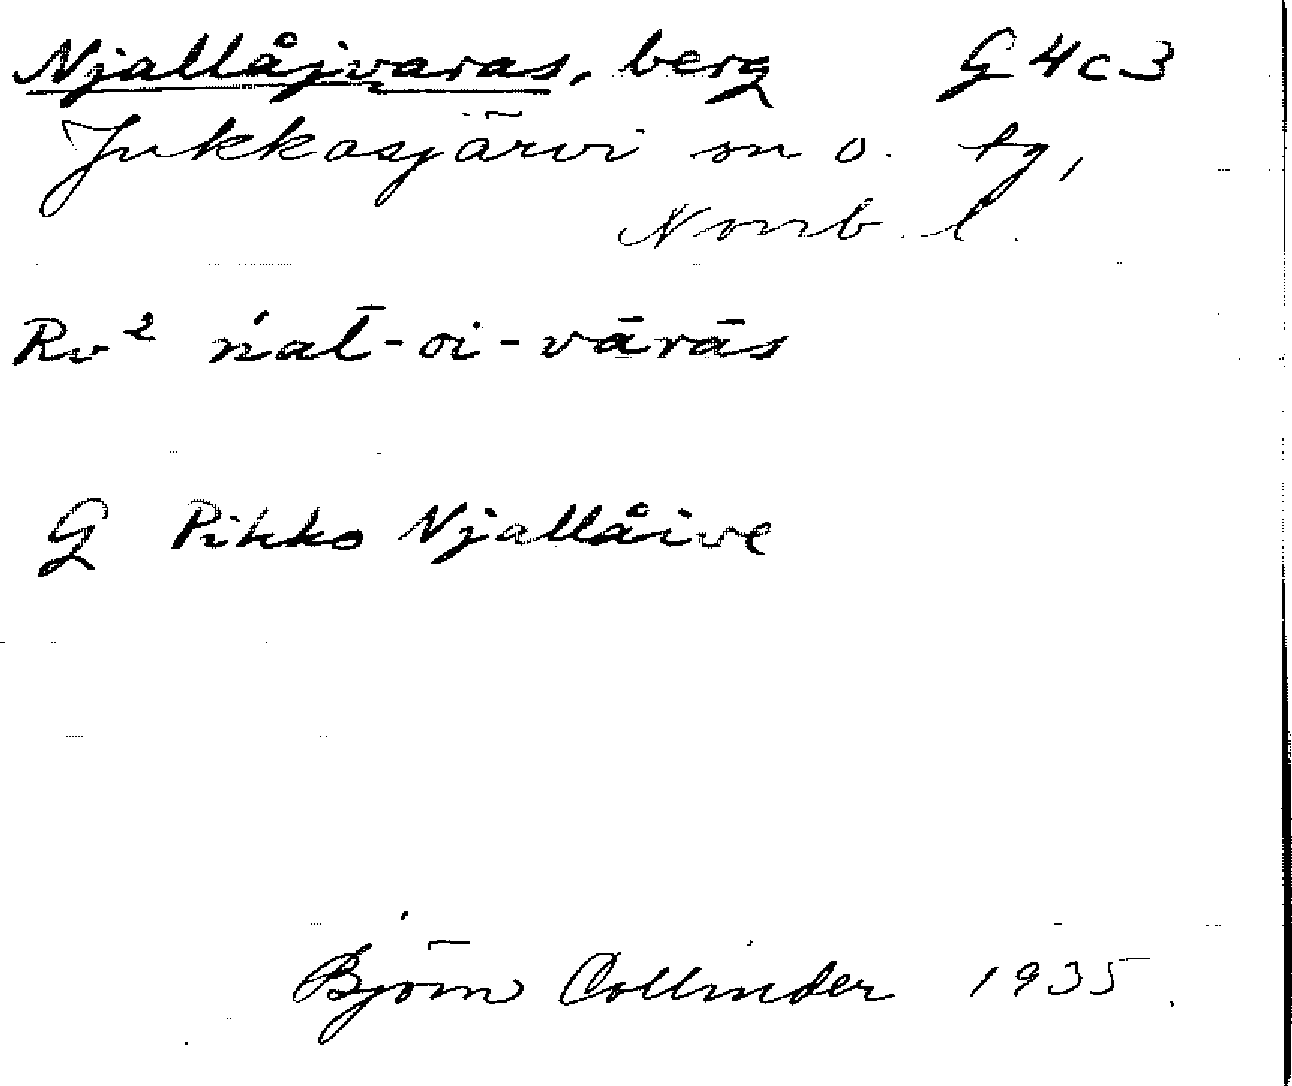 Njallåjvaras, berg G4c3
Jukkasjärvi sn o. tg,
Norrb. l.
Rv² ńal̄-oi-vārās
G Pikko Njallåive
Björn Collinder 1935.